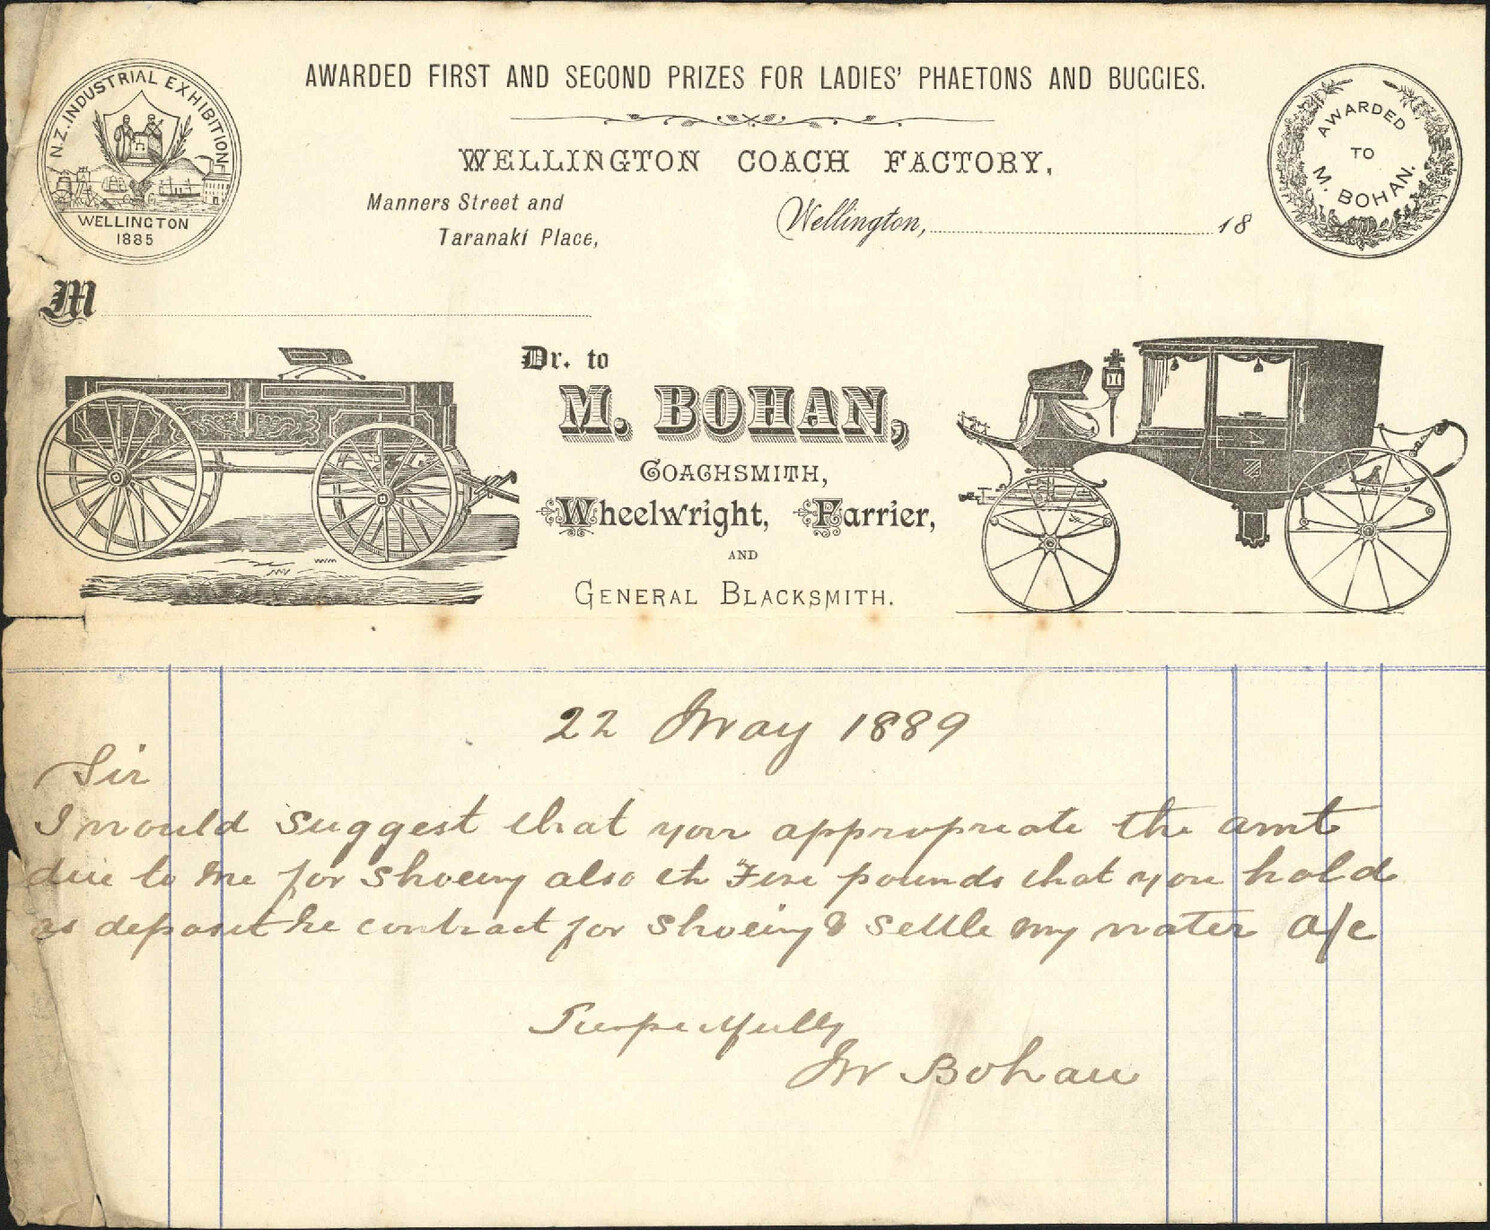 AWARDED FIRST AND SECOND PRIZES FOR LADIES' PHAETONS AND BUGGIES.
N.Z. INDUSTRIAL EXHIBITION
WELLINGTON
1885
AWARDED
TO
M. BOHAN.
WELLINGTON COACH FACTORY,
Manners Street and
Taranaki Place,
Wellington, 18
M
Dr. to
M. BOHAN,
COACHSMITH,
Wheelwright, Farrier,
AND
GENERAL BLACKSMITH.
22 May 1889
Sir
I would suggest that you appropriate the amt
due to me for shoeing also th Five pounds that you hold
as deposit he contract for shoeing & settle my water a/c
Respectfully
M Bohan